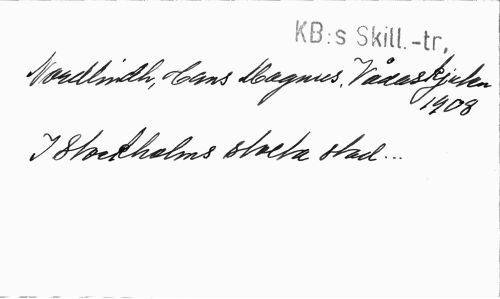 KB:s Skill.-tr,
Nordlindh, Hans Magnus. Vådaskjuten
1908
I Stockholms stora stad...